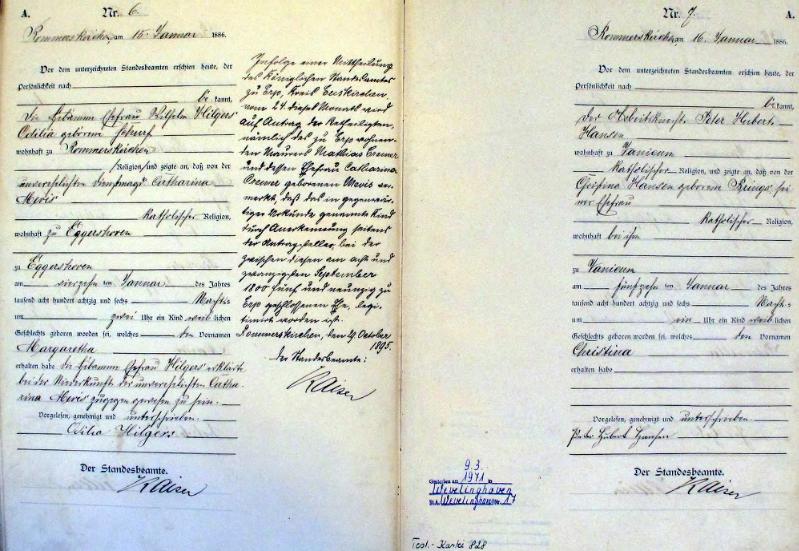 A.
Nr. 6.
Rommerskirchen, am 16. Januar 1886.
Vor dem unterzeichneten Standesbeamten erschien heute, der
Persönlichkeit nach
be kannt,
die Hebamme Ehefrau Wilhelm Hilgers
Odilia geborene Schurf
wohnhaft zu Rommerskirchen
Religion, und zeigte an, daß von der
unverehelichten Dienstmagd Catharina
Mevis
Katholischer Religion,
wohnhaft zu Eggershoven
zu Eggershoven
am vierzehn ten Januar des Jahres
tausend acht hundert achtzig und sechs Nachts
um zwei Uhr ein Kind weib lichen
Geschlechts geboren worden sei, welches den Vornamen
Margaretha
erhalten habe die Hebamme Ehefrau Hilgers erklärte
bei der Niederkunft der unverehelichten Catha-
rina Mevis zugegen gewesen zu sein.
Vorgelesen, genehmigt und unterschrieben
Odilia Hilgers
Der Standesbeamte.
Kaiser
Infolge einer Mittheilung
des Königlichen Standesamtes
zu Erp, Kreis Euskirchen,
vom 24 dieses Monats wird
auf Antrag der Betheiligten,
nämlich des zu Erp wohnen-
den Maurers Mathias Cremer
und dessen Ehefrau Catharina
Cremer geborenen Mevis ver-
merkt, daß das in gegenwär-
tiger Urkunde genannte Kind
durch Anerkennung seitens
der Antragsteller bei der
zwischen diesen am acht und
zwanzigsten September
1800 fünf und neunzig zu
Erp geschlossenen Ehe, legi-
timirt worden ist.
Rommerskirchen, den 29 October
1895.
Der Standesbeamte:
Kaiser
A.
Nr. 7.
Rommerskirchen, am 16. Januar 1886.
Vor dem unterzeichneten Standesbeamten erschien heute, der
Persönlichkeit nach
be kannt,
der Arbeitsknecht Peter Hubert
Hansen
wohnhaft zu Vanikum
Katholischer Religion, und zeigte an, daß von der
Hansen geborene Krings, sei-
ner Ehefrau
Katholischer Religion,
wohnhaft bei ihm
zu Vanikum
am fünfzehn ten Januar des Jahres
tausend acht hundert achtzig und sechs Nachts
um ein Uhr ein Kind weib lichen
Geschlechts geboren worden sei, welches den Vornamen
Christina
erhalten habe
Vorgelesen, genehmigt und unterschrieben
Peter Hubert Hansen
Der Standesbeamte.
Kaiser
9.3.
Gestorben am 1971 in
Wevelinghoven
Wevelinghoven 17
828